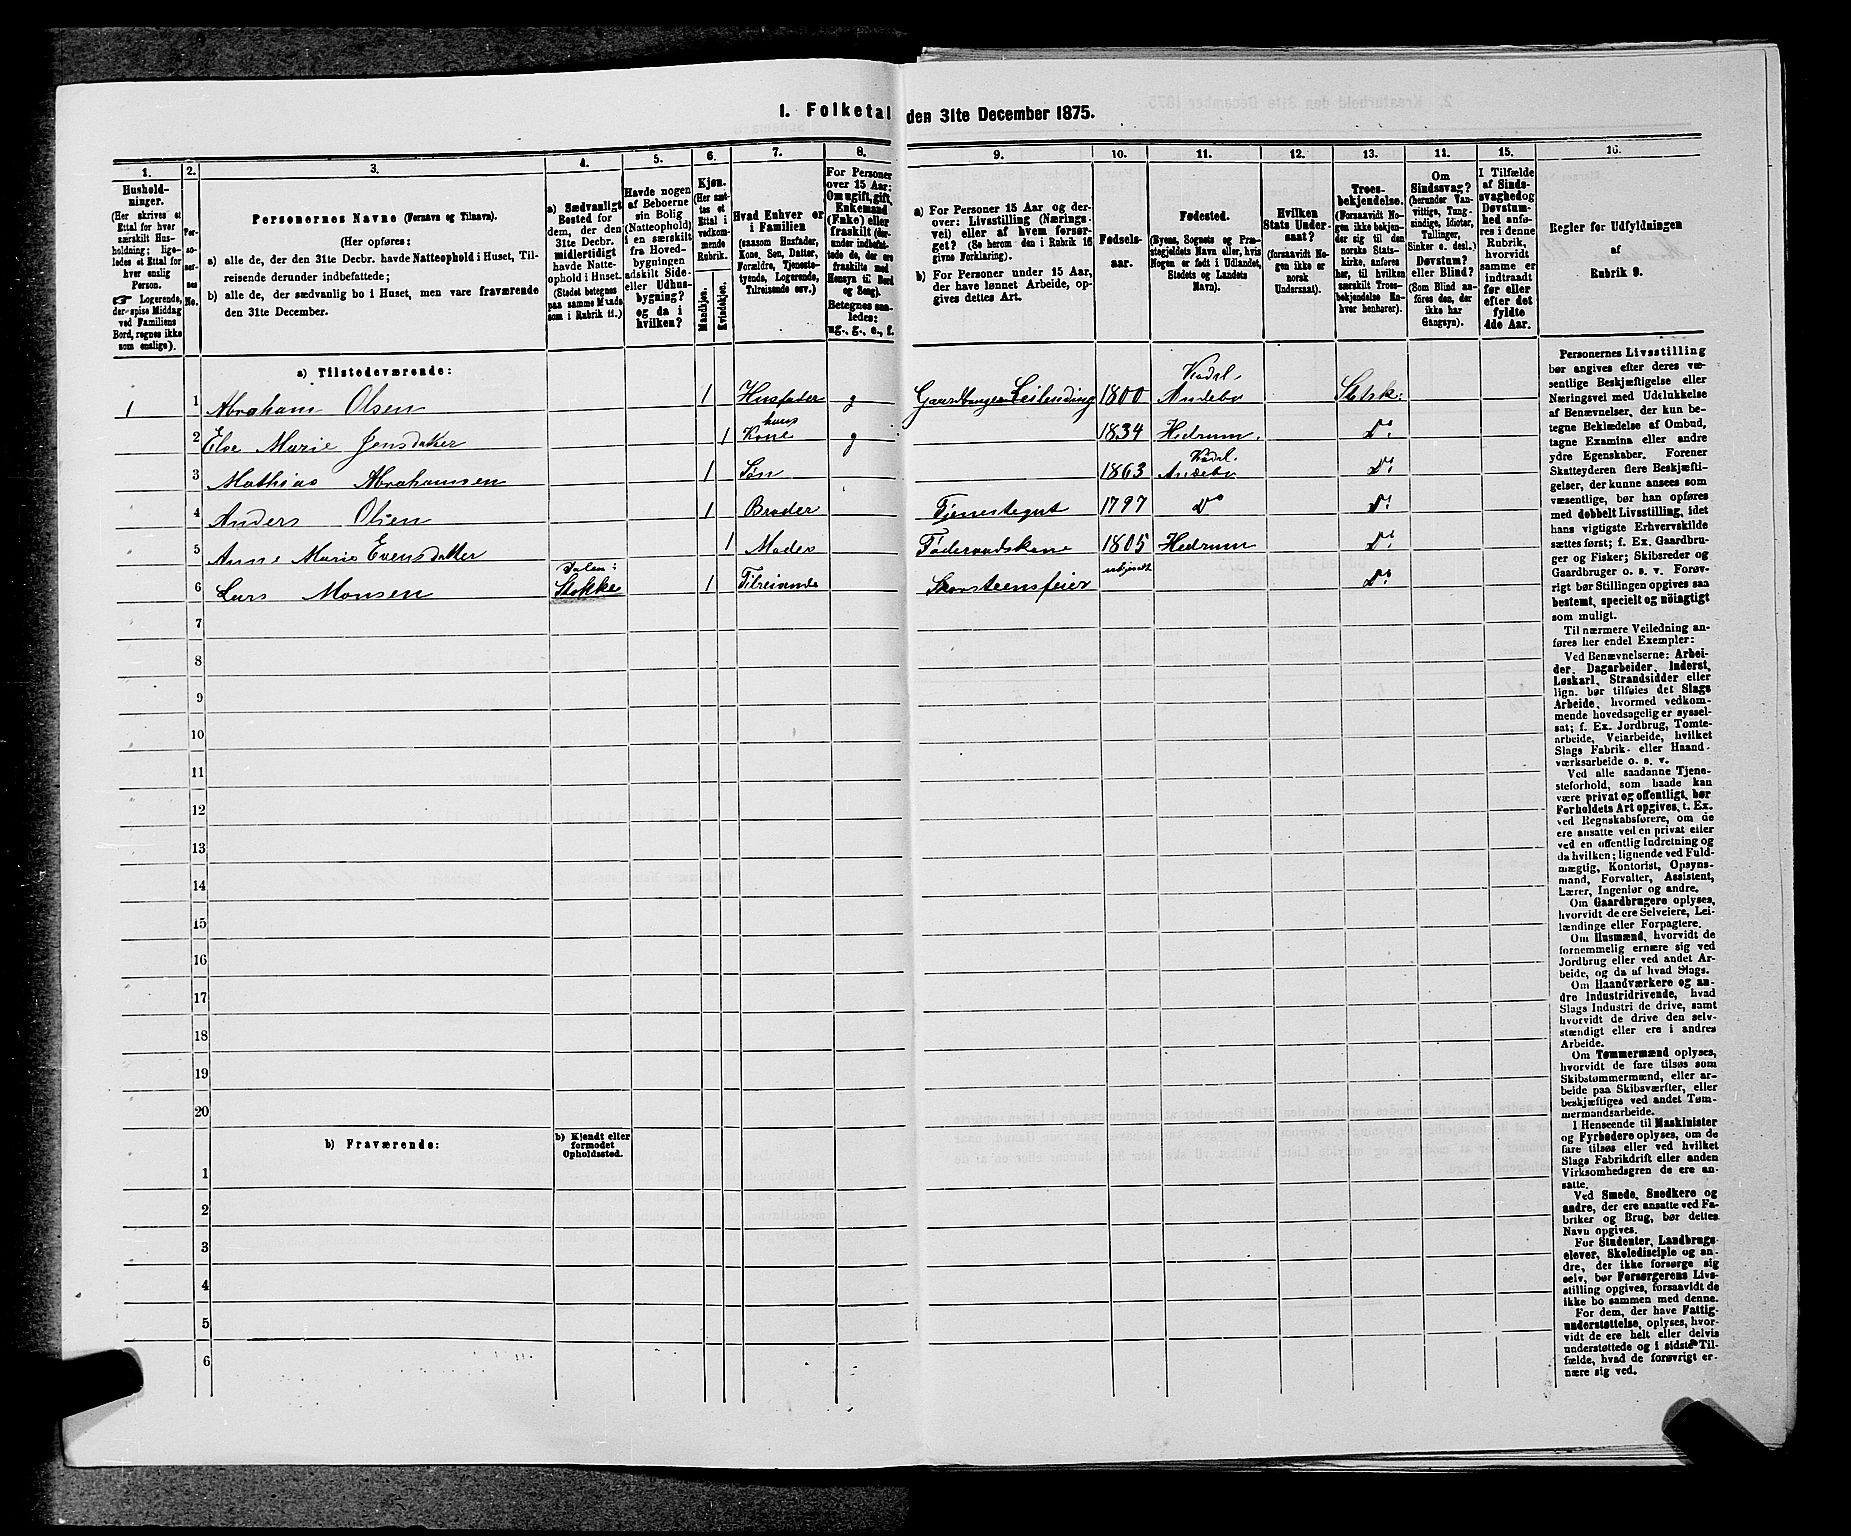 1. Folketal den 31te December 1875.
1. 2. 3. 4. 5. 6. 7. 8. 9. 10. 11. 12. 13. 14. 15. 16.
Hushold-
ninger.
(Her skrives et
Ettal for hver
særskilt Hus-
holdning; lige-
ledes et Ettal for
hver enslig
Person.
☞ Logerende,
der spise Middag
ved Familiens
Bord, regnes ikke
som enslige).
Per-
so-
ner-
nes
No.
Personernes Navne (Fornavn og Tilnavn).
(Her opføres:
a) alle de, der den 31te Decbr. havde Natteophold i Huset, Til-
reisende derunder indbefattede;
b) alle de, der sædvanlig bo i Huset, men vare fraværende
den 31te December.
a) Sædvanligt
Bosted for
dem, der den
31te Decbr.
midlertidigt
havde Natte-
ophold i Huset.
(Stedet betegnes
paa samme Maade
som i Rubrik 11.)
Havde nogen
af Beboerne
sin Bolig
(Natteophold)
i en særskilt
fra Hoved-
bygningen
adskilt Side-
eller Udhus-
bygning?
og da i
hvilken?
Kjøn.
(Her sæt-
tes et
Ettal i
vedkom-
mende
Rubrik.
Mandkjøn.
Kvindekjøn.
Hvad Enhver er
i Familien
(saasom Husfader,
Kone, Søn, Datter,
Forældre, Tjeneste-
tyende, Logerende,
Tilreisende osv.)
For Personer
over 15 Aar:
Om ugift, gift,
Enkemand
(Enke) eller
fraskilt (der-
under indbefat-
tede de, der ere
fraskilte med
Hensyn til Bord
og Seng).
Betegnes saa-
ledes:
ug., g., e., f.
a) For Personer 15 Aar og der-
over: Livsstilling (Nærings-
vei) eller af hvem forsør-
get? (Se herom den i Rubrik 16
givne Forklaring).
b) For Personer under 15 Aar,
der have lønnet Arbeide, op-
gives dettes Art.
Fødsels-
aar.
Fødested.
(Byens, Sognets og Præ-
stegjeldets Navn eller, hvis
Nogen er født i Udlandet,
Stedets og Landets
Navn).
Hvilken
Stats Under-
saat?
(forsaavidt No-
gen ikke er
norsk
Undersaat).
Troes-
bekjendelse.
(Forsaavidt No-
gen ikke bekjen-
der sig til den
norske Stats-
kirke, anføres
her, til hvilken
særskilt Troes-
bekjendelse En-
hver henhører).
Om
Sindssvag?
(herunder Van-
vittige, Tung-
sindige, Idioter,
Tullinger,
Sinker o. desl.)
Døvstum?
eller Blind?
(Som Blind an-
føres den, der
ikke har
Gangsyn).
I Tilfælde
af Sinds-
svaghed og
Døvstum-
hed anfø-
res i denne
Rubrik,
hvorvidt
samme er
indtraadt
før eller
efter det
fyldte
4de Aar.
Regler for Udfyldningen
af
Rubrik 9.
a) Tilstedeværende:
1 1 Abraham Olsen 1 Husfader g Gaardbruger Leilending 1800 Kodal. Andebo Statsk:
2 Else Marie Jensdatter 1 hans Kone g 1834 Hedrum. Do
3 Mathias Abrahamsen 1 Søn 1863 Kodal. Andebo Do
4 Anders Olsen 1 Broder Tjenestegut 1797 Do Do
5 Anne Marie Evensdatter 1 Moder Føderaadskone 1805 Hedrum Do
6 Lars Monsen Dalen: Stokke 1 Tilreisende Skorsteensfeier ubekjendt Do
7
8
9
10
11
12
13
14
15
16
17
18
19
20
b) Fraværende:
b) Kjendt eller
formodet
Opholdssted.
1
2
3
4
5
6
Personernes Livsstilling
bør angives efter deres væ-
sentlige Beskjæftigelse eller
Næringsvei med Udelukkelse
af Benævnelser, der kun be-
tegne Beklædelse af Ombud,
tagne Examina eller andre
ydre Egenskaber. Forener
Skatteyderen flere Beskjæfti-
gelser, der kunne ansees som
væsentlige, bør han opføres
med dobbelt Livsstilling, idet
hans vigtigste Erhvervskilde
sættes først; f. Ex. Gaardbru-
ger og Fisker; Skibsreder og
Gaardbruger o. s. v. Forøv-
rigt bør Stillingen opgives saa
bestemt, specielt og nöiagtigt
som muligt.
Til nærmere Veiledning an-
føres her endel Exempler:
Ved Benævnelserne: Arbei-
der, Dagarbeider, Inderst,
Løskarl, Strandsidder eller
lign. bør tilføies det Slags
Arbeide, hvormed vedkom-
mende hovedsagelig er syssel-
sat; f. Ex. Jordbrug, Tomte-
arbeide, Veiarbeide, hvilket
Slags Fabrik- eller Haand-
værksarbeide o. s. v.
Ved alle saadanne Tjene-
steforhold, som baade kan
være privat og offentligt, bør
Forholdets Art opgives, t. Ex.
ved Regnskabsførere, om de
ere ansatte ved en privat eller
ved en offentlig Indretning og
da hvilken; lignende ved Fuld-
mægtig, Kontorist, Opsyns-
mand, Forvalter, Assistent,
Lærer, Ingeniør og andre.
Om Gaardbrugere oplyses,
hvorvidt de ere Selveiere, Lei-
lændinge eller Forpagtere.
Om Husmænd, hvorvidt de
fornemmelig ernære sig ved
Jordbrug eller ved andet Ar-
beide, og da af hvad Slags.
Om Haandværkere og an-
dre Industridrivende, hvad
Slags Industri de drive, samt
hvorvidt de drive den selv-
stændigt eller ere i andres
Arbeide.
Om Tømmermænd oplyses,
hvorvidt de fare tilsøs som
Skibstømmermænd, eller ar-
beide paa Skibsværfter, eller
beskjæftiges ved andet Tøm-
mermandsarbeide.
I Henseende til Maskinister
og Fyrbødere oplyses, om de
fare tilsøs eller ved hvilket
Slags Fabrikdrift eller anden
Virksomhedsgren de ere an-
satte.
Ved Smede, Snedkere og
andre, der ere ansatte ved Fa-
briker og Brug, bør dettes
Navn opgives.
For Studenter, Landbrugs-
elever, Skoledisciple og an-
dre, der ikke forsørge sig
selv, bør Forsørgerens Livs-
stilling opgives, forsaavidt de
ikke bo sammen med denne.
For dem, der have Fattig-
understøttelse, oplyses, hvor-
vidt de ere helt eller delvis
understøttede og i sidste Til-
fælde, hvad de forøvrigt er-
nære sig ved.